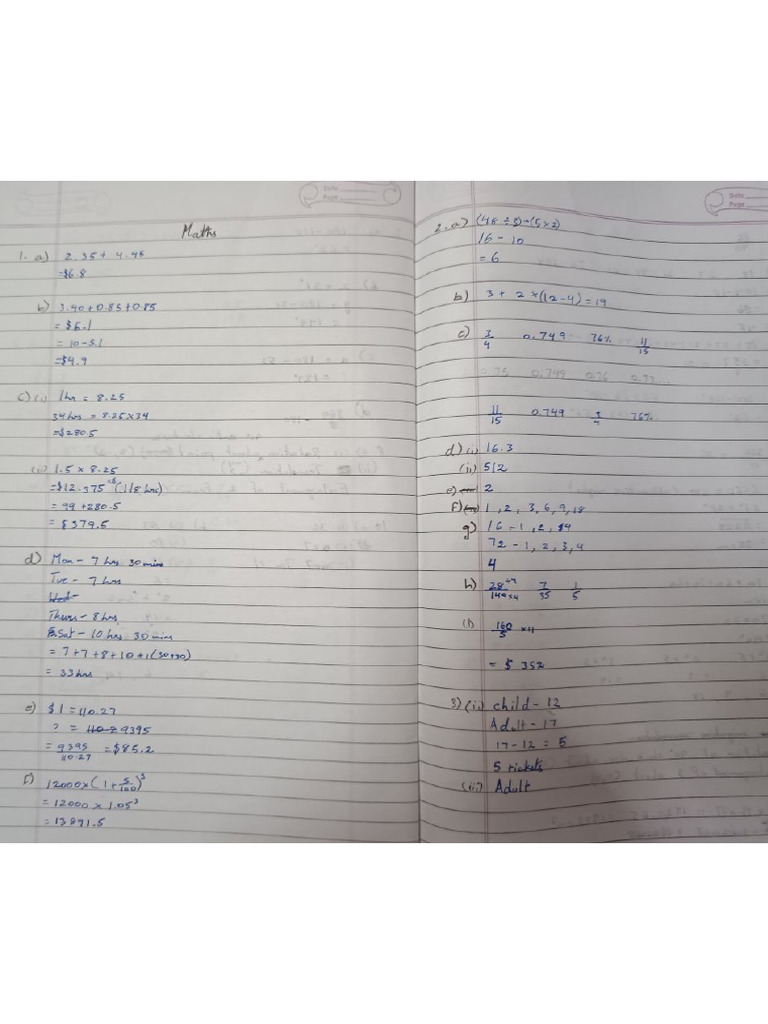 Date
Page
Maths
1. a) 2.35 + 4.45
= $6.8
b) 3.40 + 0.85 + 0.85
= $5.1
= 10 - 5.1
= $4.9
c) (i) 1hr = 8.25
34hrs = 8.25 x 34
= $280.5
(ii) 1.5 x 8.25
= $12.375 x 8 (1/8 hrs)
= 99 + 280.5
= $379.5
d) Mon - 7 hrs 30 mins
Tue - 7 hrs
Wed -
Thurs - 8 hrs
Sat - 10 hrs 30 mins
= 7 + 7 + 8 + 10 + 1 (30+30)
= 33 hrs
e) $1 = 110.27
? = 9395
= 9395/110.27 = $85.2
f) 12000 x (1 + 5/100)³
= 12000 x 1.05³
= 13891.5
Date
Page
2. a) (48 ÷ 3) - (5 x 2)
16 - 10
= 6
b) 3 + 2 x (12 - 4) = 19
c) 3/4 0.749 76% 11/15
0.75 0.749 0.76 0.73...
11/15 0.749 3/4 76%
d) (i) 16.3
(ii) 512
e) 2
f) 1, 2, 3, 6, 9, 18
g) 16 - 1, 2, 4
72 - 1, 2, 3, 4
4
h) 28 ÷ 4 / 140 ÷ 4 7/35 1/5
(i) 160/5 x 11
= $ 352
3) (ii) child - 12
Adult - 17
17 - 12 = 5
5 tickets
(iii) Adult